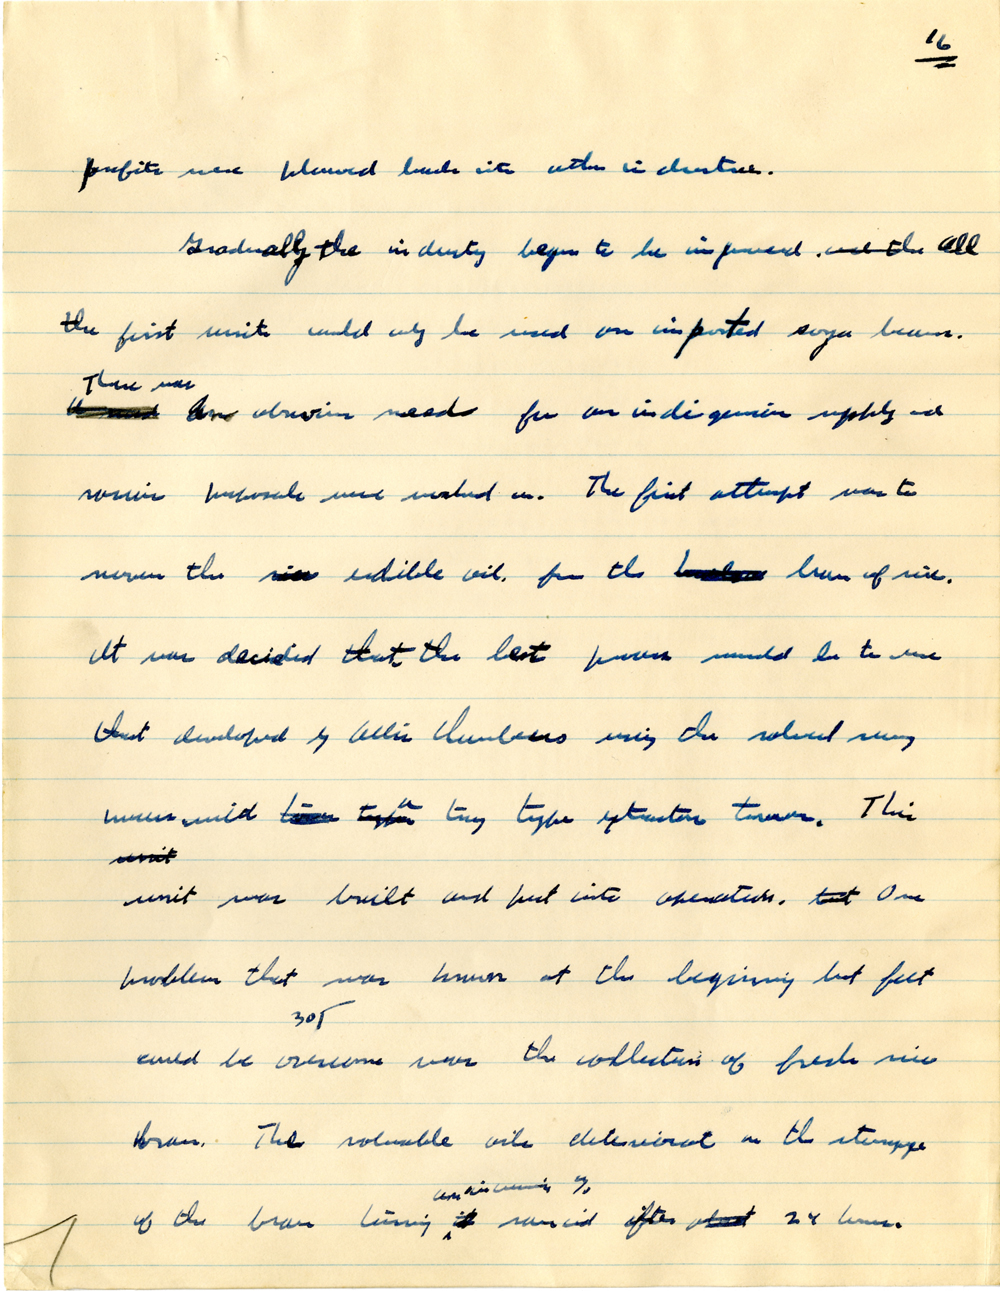 16
profits were plowed back into other industries.
Gradually the industry began to be improved. and the All
the first units could only be used on imported soya beans.
There was
An obvious need for an indigenous supply and
various proposals were worked on. The first attempt was to
recover the rice edible oil. from the bran of rice.
It was decided that the best process would be to use
that developed by Allis Chalmers using the solvent
process with type a tray type extraction tower. This
unit
unit was built and put into operation. but One
problem that was known at the beginning but felt
305
could be overcome was the collection of fresh rice
bran. The valuable oils deteriorat on the storage
of the bran turning it rancid after about 24 hours.